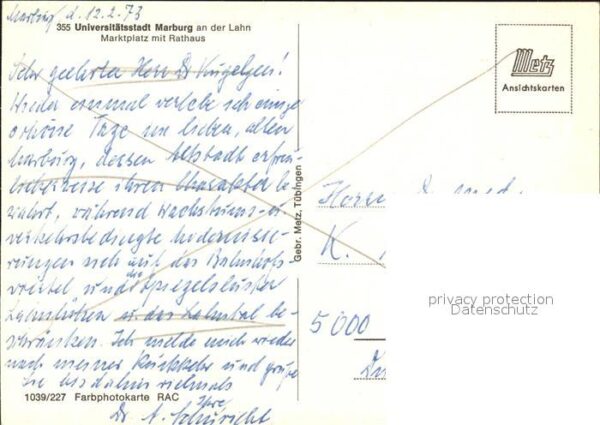 Marburg d. 12.2.73
355 Universitätsstadt Marburg an der Lahn
Marktplatz mit Rathaus
Sehr geehrter Herr Dr Kügelgen!
Wieder einmal verlebe ich einige
schöne Tage im lieben, alten
Marburg, dessen Altstadt erfreu-
licherweise ihren Charakter be-
wahrt, während wachstums- u.
verkehrsbedingte Modernisie-
rungen sich auf das Bahnhofs-
viertel und die Spiegelsluster
Lahnhöhen u. das Lahntal be-
schränken. Ich melde mich wieder
nach meiner Rückkehr und grüße
Sie bis dahin vielmals
Ihre
Dr. A. Schuricht
1039/227 Farbphotokarte RAC
Gebr. Metz, Tübingen
Metz
Ansichtskarten
Herrn
K.
5000
privacy protection
Datenschutz